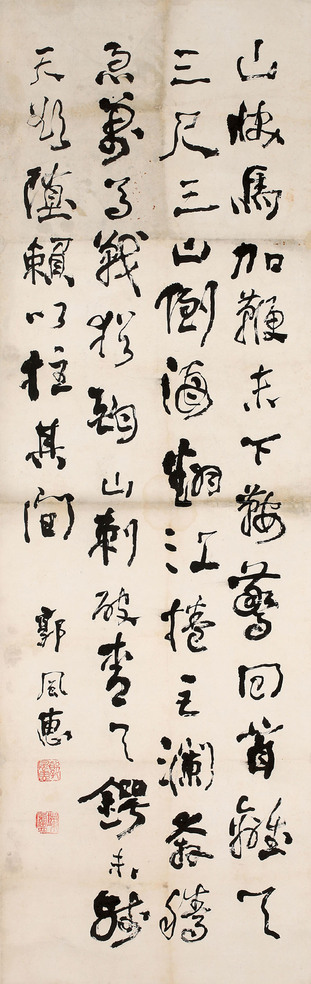 山快馬加鞭未下鞍驚回首離天
三尺三山倒海翻江捲巨瀾奔騰
急萬馬戰猶酣山刺破青天鍔未殘
天欲墮賴以柱其間
郭風惠